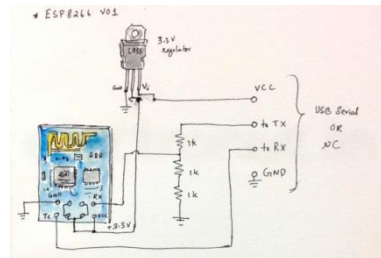 * ESP8266 V01
3.3V
Regulator
Gnd
Vi
VCC
to TX
to RX
GND
USB Serial
OR
NC
1k
1k
1k
Gnd
RX
TX
VCC
+3.3V